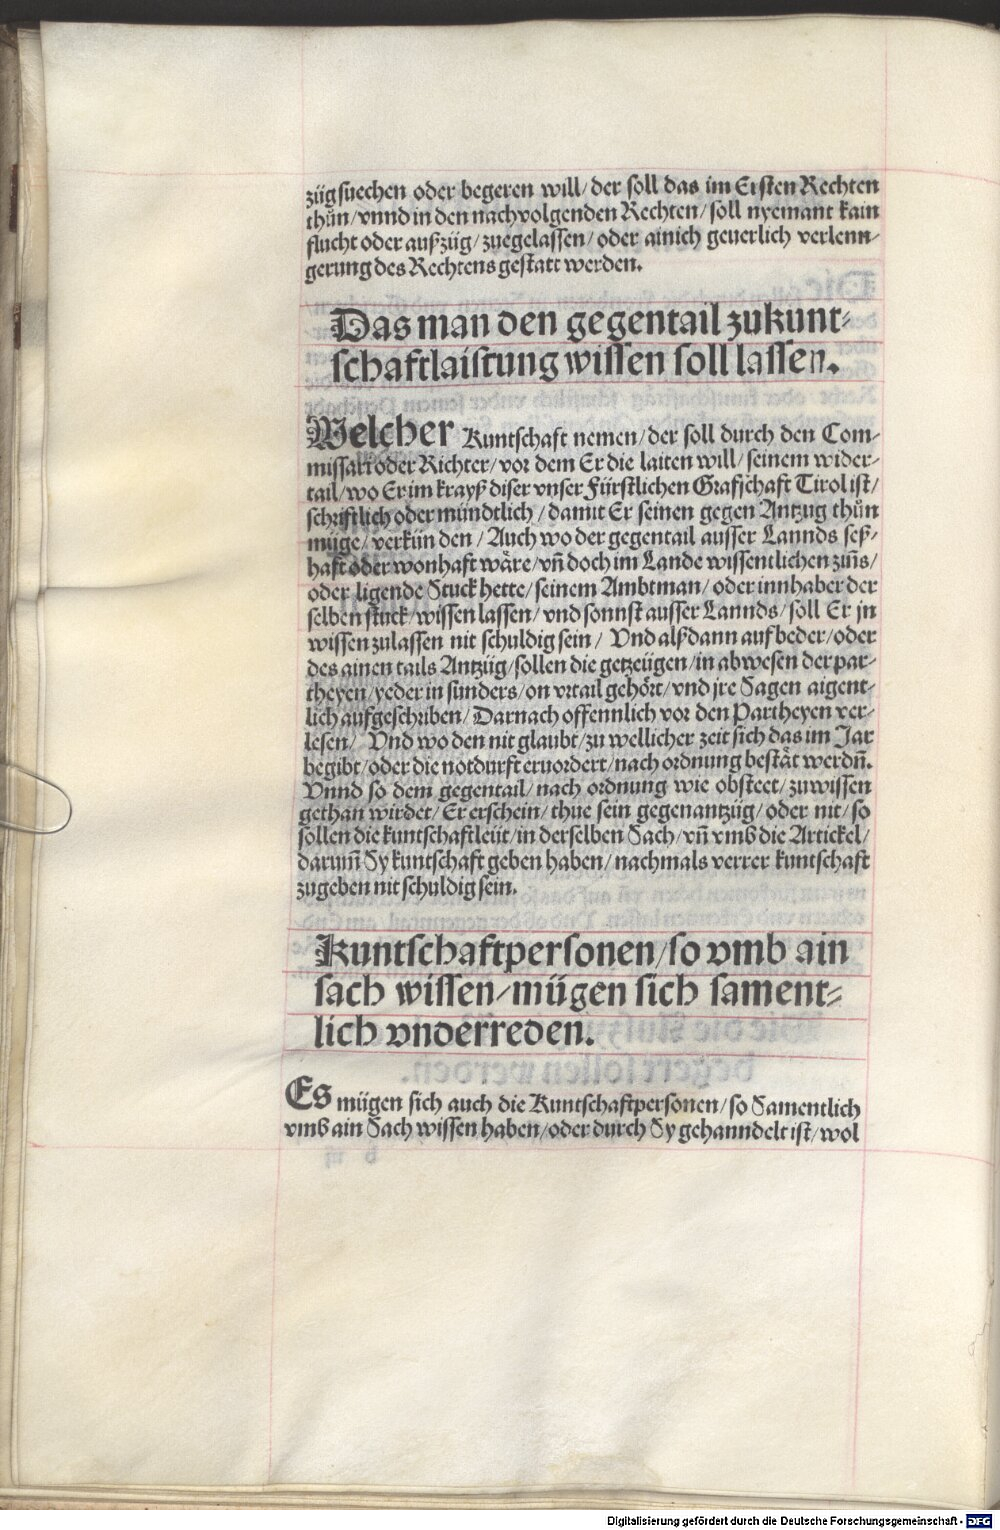 zügsuechen oder begeren will/ der soll das im Ersten Rechten
thůn/ vnnd in den nachvolgenden Rechten/ soll nyemant kain
flucht oder außzüg/ zuegelassen/ oder ainich geuerlich verlenn-
gerung des Rechtens gestatt werden.
Das man den gegentail zukunt-
schaftlaistung wissen soll lassen.
Welcher Kuntschaft nemen/ der soll durch den Com-
missari oder Richter/ vor dem Er die laiten will/ seinem wider-
tail/ wo Er im krayß diser vnser Fürstlichen Grafschaft Tirol ist/
schriftlich oder mündtlich/ damit Er seinen gegen Antzug thůn
müge/ verkünden/ Auch wo der gegentail ausser Lannds seß-
haft oder wonhaft wäre/ vñ doch im Lande wissentlichen zinns/
oder ligende Stuck hette/ seinem Ambtman/ oder innhaber der
selben stuck/ wissen lassen/ vnd sonnst ausser Lannds/ soll Er jn
wissen zulassen nit schuldig sein/ Vnd alßdann auf beder/ oder
des ainen tails Antzüg/ sollen die getzeügen/ in abwesen der par-
theyen/ yeder in sunders/ on vrtail gehört/ vnd jre Sagen aigent-
lich aufgeschriben/ Darnach offennlich vor den Partheyen ver-
lesen/ Vnd wo den nit glaubt/ zu wellicher zeit sich das im Jar
begibt/ oder die notdurft eruordert/ nach ordnung bestät werdñ.
Vnnd so dem gegentail/ nach ordnung wie obsteet/ zuwissen
gethan wirdet/ Er erschein/ thue sein gegenantzüg/ oder nit/ so
sollen die kuntschaftleüt/ in derselben Sach/ vñ vmb die Artickel/
darumb Sy kuntschaft geben haben/ nachmals verrer kuntschaft
zugeben nit schuldig sein.
Kuntschaftpersonen/ so vmb ain
sach wissen/ mügen sich sament-
lich vnderreden.
Es mügen sich auch die Kuntschaftpersonen/ so Samentlich
vmb ain Sach wissen haben/ oder durch Sy gehanndelt ist/ wol
Digitalisierung gefördert durch die Deutsche Forschungsgemeinschaft - DFG